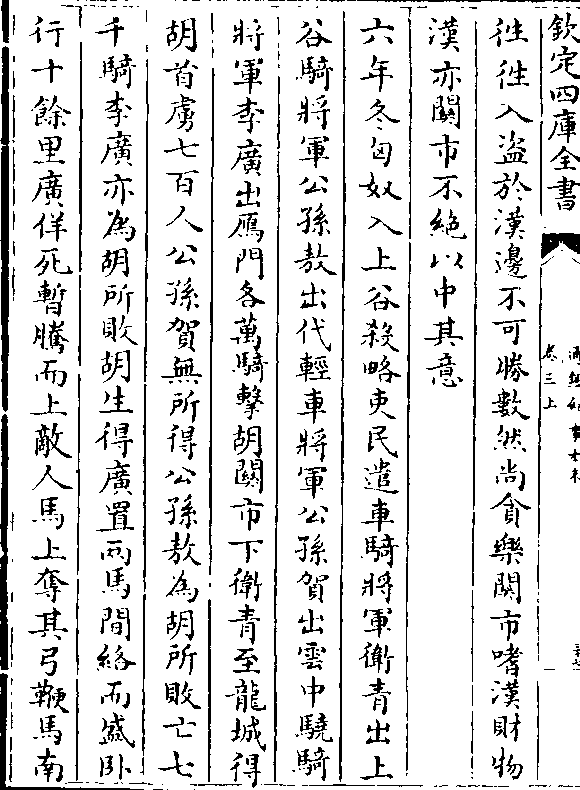 欽定四庫全書
卷三上
徃徃入盗於漢邊不可勝數然尚貪樂闗市嗜漢財物
漢亦闗市不絶以中其意
六年冬匈奴入上谷殺略吏民遣車騎將軍衛青出上
谷騎將軍公孫敖出代輕車將軍公孫賀出雲中驍騎
將軍李廣出鴈門各萬騎擊胡闗市下衛青至龍城得
胡首虜七百人公孫賀無所得公孫敖為胡所敗亡七
千騎李廣亦為胡所敗胡生得廣置兩馬間絡而盛卧
行十餘里廣佯死暫騰而上敵人馬上奪其弓鞭馬南